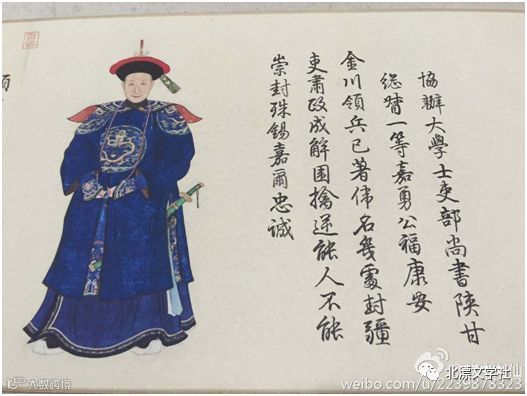 協辦大學士吏部尚書陝甘
總督一等嘉勇公福康安
金川領兵已著偉名幾處封疆
吏肅政成解困擒逆能人不能
崇封殊錫嘉爾忠誠
北漂文学社
weibo.com/u/2239878323
大数跨境